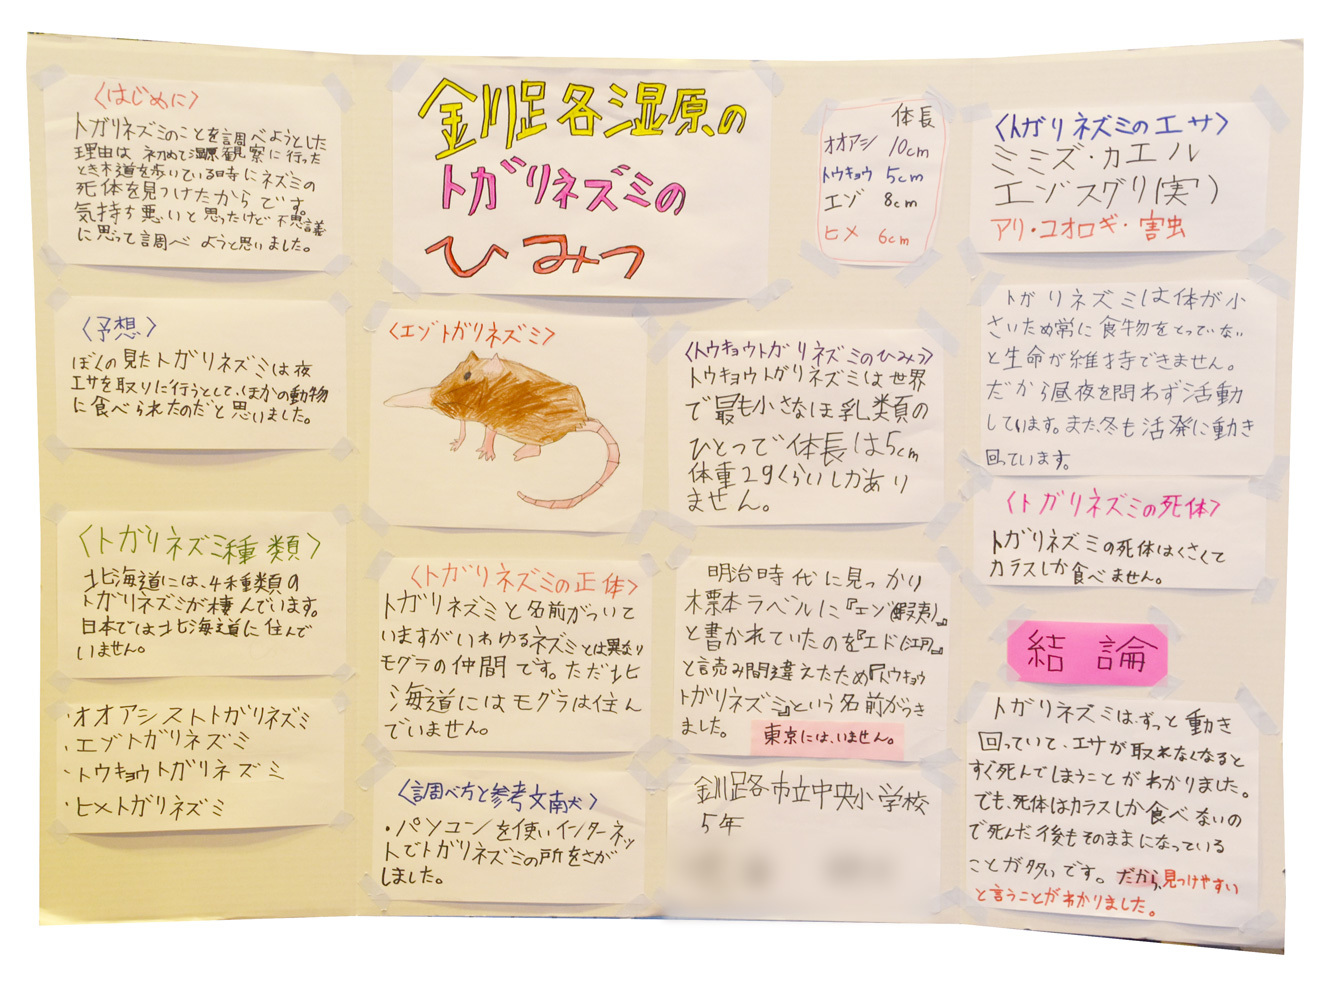 釧路湿原の
トガリネズミの
ひみつ
〈はじめに〉
トガリネズミのことを調べようとした
理由は、初めて湿原観察に行った
とき木道を歩いている時にネズミの
死体を見つけたからです。
気持ち悪いと思ったけど不思議
に思って調べようと思いました。
〈予想〉
ぼくの見たトガリネズミは夜
エサを取りに行うとして、ほかの動物
に食べられたのだと思いました。
〈トガリネズミ種類〉
北海道には、4種類の
トガリネズミが棲んでいます。
日本では北海道に住んで
いません。
・オオアシストトガリネズミ
・エゾトガリネズミ
・トウキョウトガリネズミ
・ヒメトガリネズミ
〈エゾトガリネズミ〉
〈トガリネズミの正体〉
トガリネズミと名前がついて
いますがいわゆるネズミとは異なり
モグラの仲間です。ただ北
海道にはモグラは住ん
でいません。
〈調べ方と参考文献〉
・パソコンを使いインターネッ
トでトガリネズミの所をさが
しました。
体長
オオアシ 10cm
トウキョウ 5cm
エゾ 8cm
ヒメ 6cm
〈トウキョウトガリネズミのひみつ〉
トウキョウトガリネズミは世界
で最も小さなほ乳類の
ひとつで体長は5cm
体重2gくらいしかあり
ません。
明治時代に見つかり
標本ラベルに『エゾ(蝦夷)』
と書かれていたのを『エド(江戸)』
と読み間違えたため『トウキョウ
トガリネズミ』という名前がつき
ました。
東京には、いません。
釧路市立中央小学校
5年
〈トガリネズミのエサ〉
ミミズ・カエル
エゾスグリ(実)
アリ・コオロギ・害虫
トガリネズミは体が小
さいため常に食物をとっていない
と生命が維持できません。
だから昼夜を問わず活動
しています。また、冬も活発に動き
回っています。
〈トガリネズミの死体〉
トガリネズミの死体はくさくて
カラスしか食べません。
結論
トガリネズミは、ずっと動き
回っていて、エサが取れなくなると
すぐ死んでしまうことがわかりました。
でも、死体はカラスしか食べないの
で死んだ後もそのままになっている
ことが多いです。だから、見つけやすい
と言うことがわかりました。